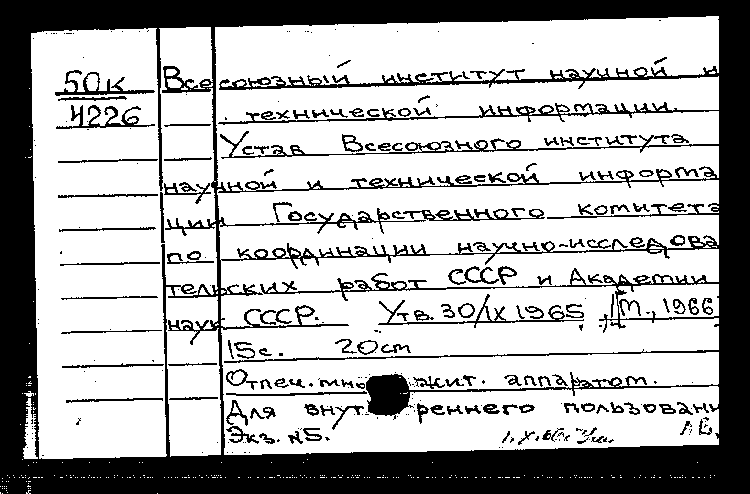 50к Всесоюзный институт научной и
4226 технической информации.
Устав Всесоюзного института
научной и технической информа
ции Государственного комитета
по координации научно-исследова
тельских работ СССР и Академии
наук СССР. Утв. 30/IX 1965, М., 1966
15с. 20см
Отпеч. множит. аппаратом.
Для внутреннего пользовани
Экз. №5.